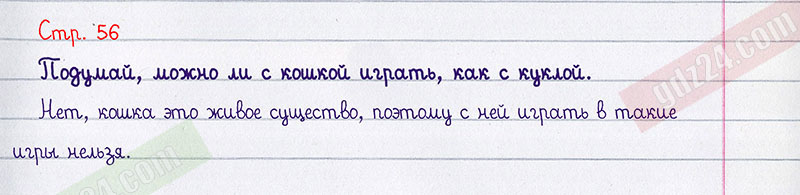 Стр. 56
Подумай, можно ли с кошкой играть, как с куклой.
Нет, кошка это живое существо, поэтому с ней играть в такие
игры нельзя.
gdz24.com
24.com